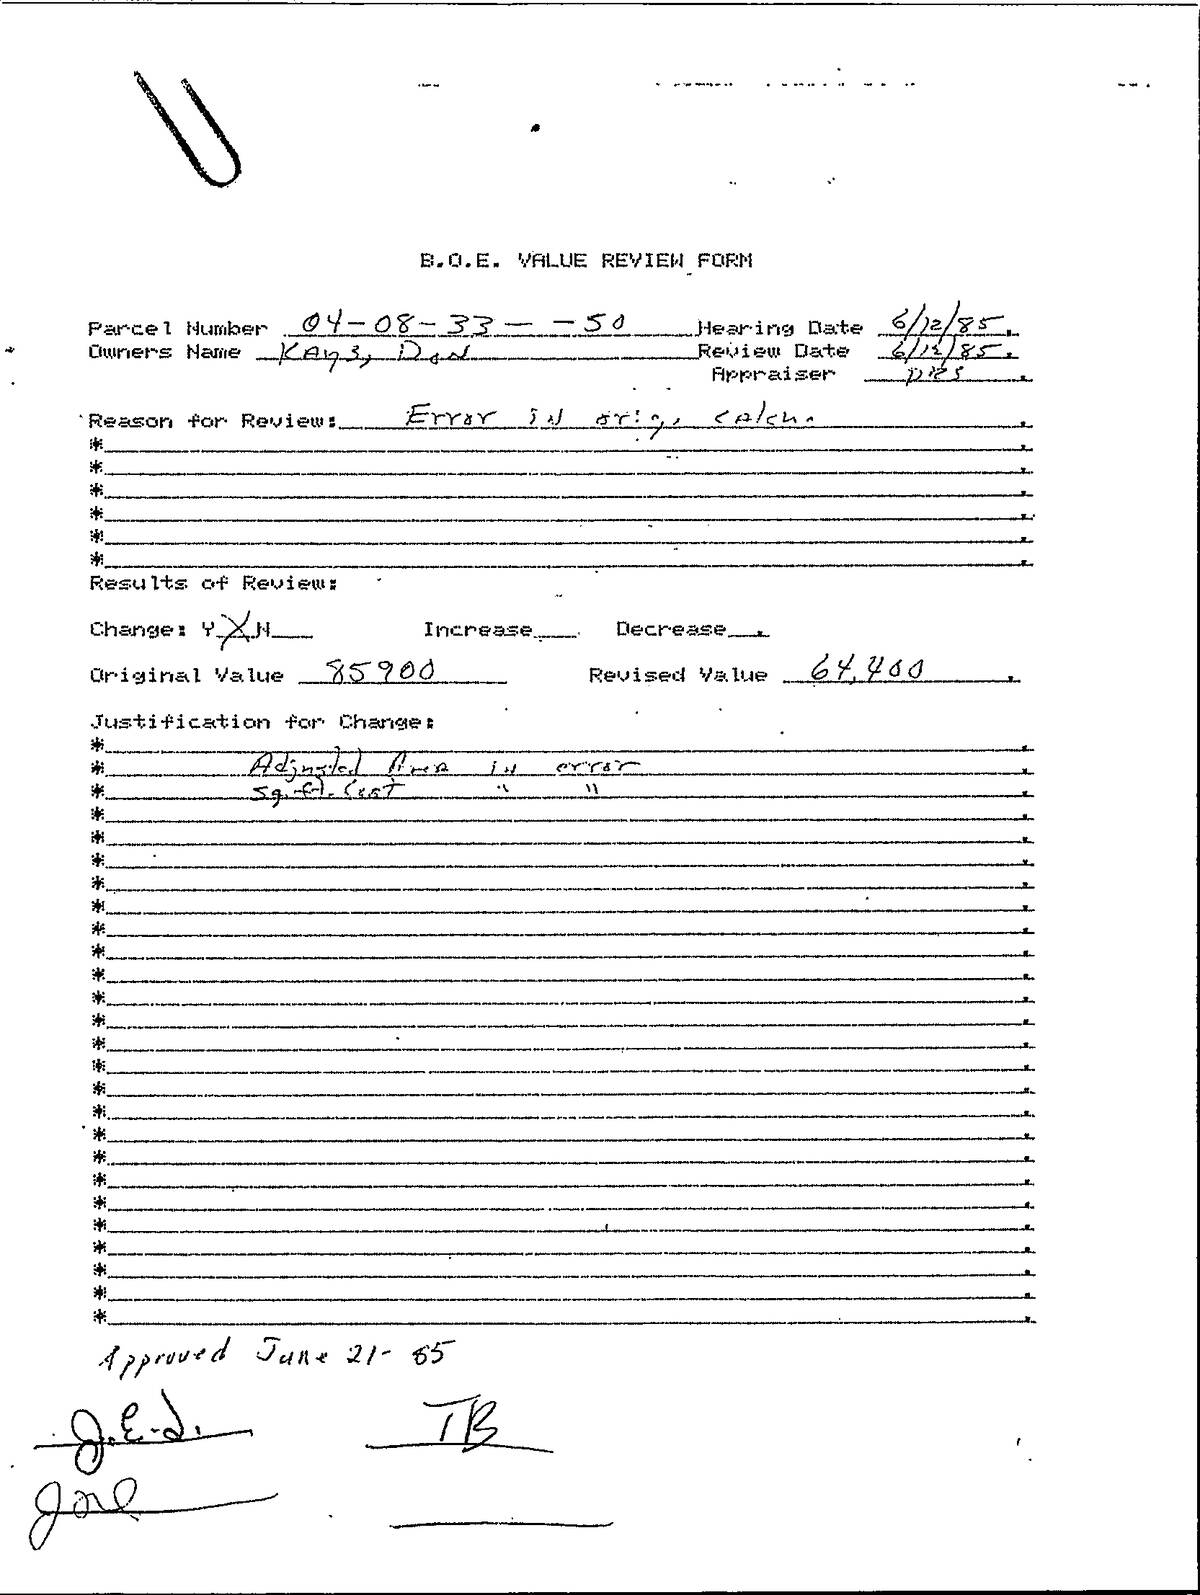 B.O.E. VALUE REVIEW FORM
Parcel Number 04-08-33- -50 Hearing Date 6/12/85.
Owners Name Kays, Don Review Date 6/12/85.
Appraiser .
Reason for Review: Error in orig. calcn. .
* .
* .
* .
* .
* .
* .
Results of Review:
Change: Y X N Increase Decrease .
Original Value 85900 Revised Value 64,400 .
Justification for Change:
* .
* Adjusted Area in error .
* Sq. ft. Cost " " .
* .
* .
* .
* .
* .
* .
* .
* .
* .
* .
* .
* .
* .
* .
* .
* .
* .
* .
* .
* .
* .
* .
* .
Approved June 21- 85
J.E.J. TB